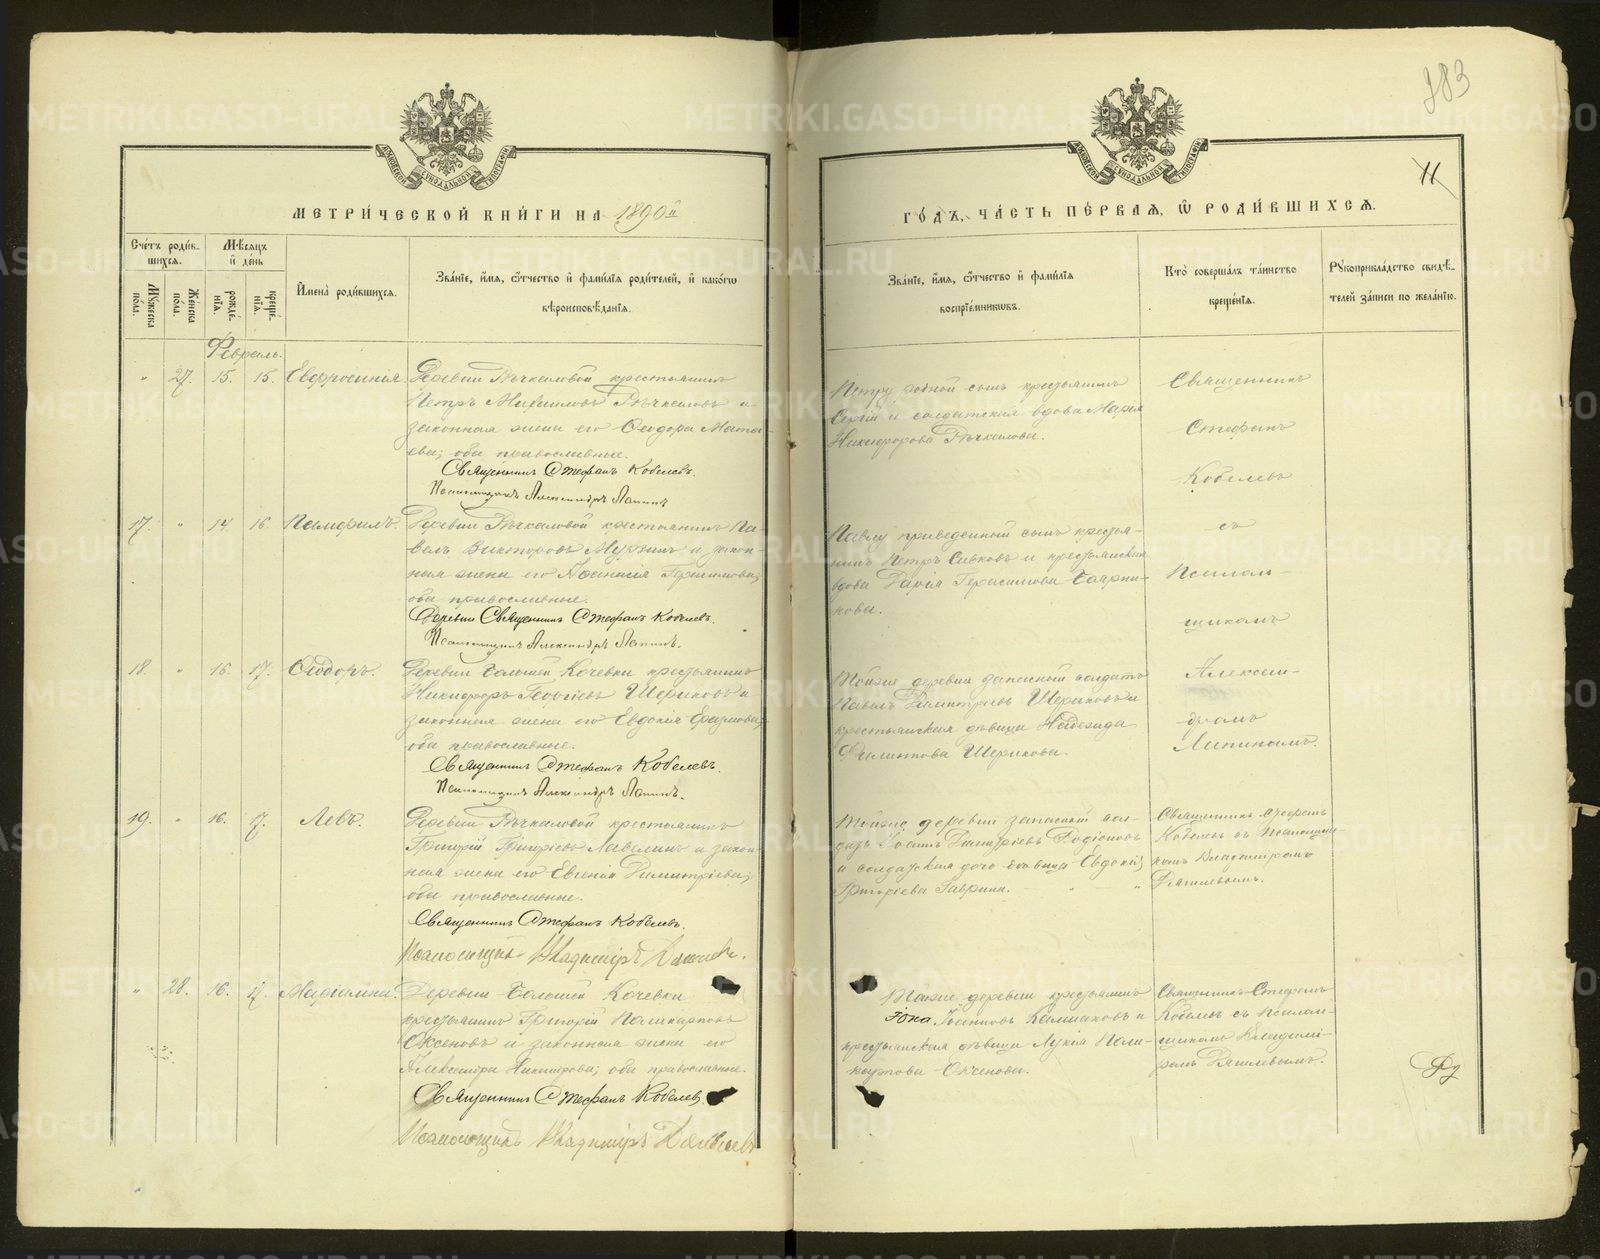 983
11
МЕТРИ́ЧЕСКОЙ КНИ́ГИ НА 1890й
ГО́ДЪ, ЧА́СТЬ ПЕ́РВАѦ, Ѡ҆ РОДИ́ВШИХСѦ.
Сче́тъ роди́в-
шихсѧ.
Мꙋ́жеска по́ла.
Же́нска по́ла.
Мѣ́сѧцъ
и҆ де́нь
рожде́-
нїѧ.
креще́-
нїѧ.
И҆мена̀ роди́вшихсѧ.
Зва́нїе, и҆́мѧ, ѻ҆́тчество и҆ фами́лїѧ роди́телей, и҆ како́гѡ
вѣроисповѣ́данїѧ.
Зва́нїе, и҆́мѧ, ѻ҆́тчество и҆ фами́лїѧ
воспрїе́мникѡвъ.
Кто̀ соверша́лъ та́инство
креще́нїѧ.
Рꙋкоприкла́дство свидѣ́-
телей за́писи по жела́нїю.
Февраль.
" 27. 15. 15. Евфросинія
Деревни Рѣчкаловой крестьянинъ
Петръ Михаиловъ Рѣчкаловъ и
законная жена его Ѳеодора Матѳ-
ева; оба православные.
Священникъ Стефанъ Кобелевъ.
Псаломщикъ Александръ Лапинъ
Петру родной сынъ крестьянинъ
Сергій и солдатская вдова Марія
Никифорова Рѣчкалова.
Священникъ
Стефанъ
Кобелевъ
съ
Псалом-
щикомъ
Алексан-
дромъ
Лапинымъ.
17. " 14 16. Памфилъ.
Деревни Рѣчкаловой крестьянинъ Па-
велъ Викторовъ и закон-
ная жена его Герасимова;
оба православные.
Священникъ Стефанъ Кобелевъ.
Псаломщикъ Александръ Лапинъ.
Павлу приведенной сынъ крестья-
нинъ Петръ Сивковъ и крестьянская
вдова Дарія Герасимова
кова.
18. " 16 17. Ѳеодоръ.
Деревни Большой Кочевки крестьянинъ
Никифоръ Георгіевъ Шериховъ и
законная жена его Евдокія
оба православные.
Священникъ Стефанъ Кобелевъ.
Псаломщикъ Александръ Лапинъ.
Тойже деревни запасный солдатъ
Павелъ Димитріевъ Шериховъ и
крестьянская дѣвица Надежда
Филиппова Шерихова.
19. " 16. 17. Левъ.
Деревни Рѣчкаловой крестьянинъ
Григорій Григорьевъ и закон-
ная жена его Евгенія Димитріева;
оба православные.
Священникъ Стефанъ Кобелевъ.
Псаломщикъ Владиміръ
Тойже деревни запасный сол-
датъ Димитріевъ Родіоновъ
и солдатская дочь дѣвица Евдокія
Григоріева Гаврина. " "
Священникъ Стефанъ
Кобелевъ съ Псаломщи-
комъ Владиміромъ
" 28. 16. 17. Маріамна.
Деревни Большой Кочевки
крестьянинъ Григорій
Оксеновъ и законная жена его
Александра Никифорова; оба православные.
Священникъ Стефанъ Кобелевъ.
Псаломщикъ Владиміръ
Тойже деревни крестьянинъ
Іона Іоанновъ Калмаковъ и
крестьянская дѣвица Лукія Поли-
карпова Оксенова.
Священникъ Стефанъ
Кобелевъ съ Псалом-
щикомъ Владимі-
ромъ
METRIKI.GASO-URAL.RU